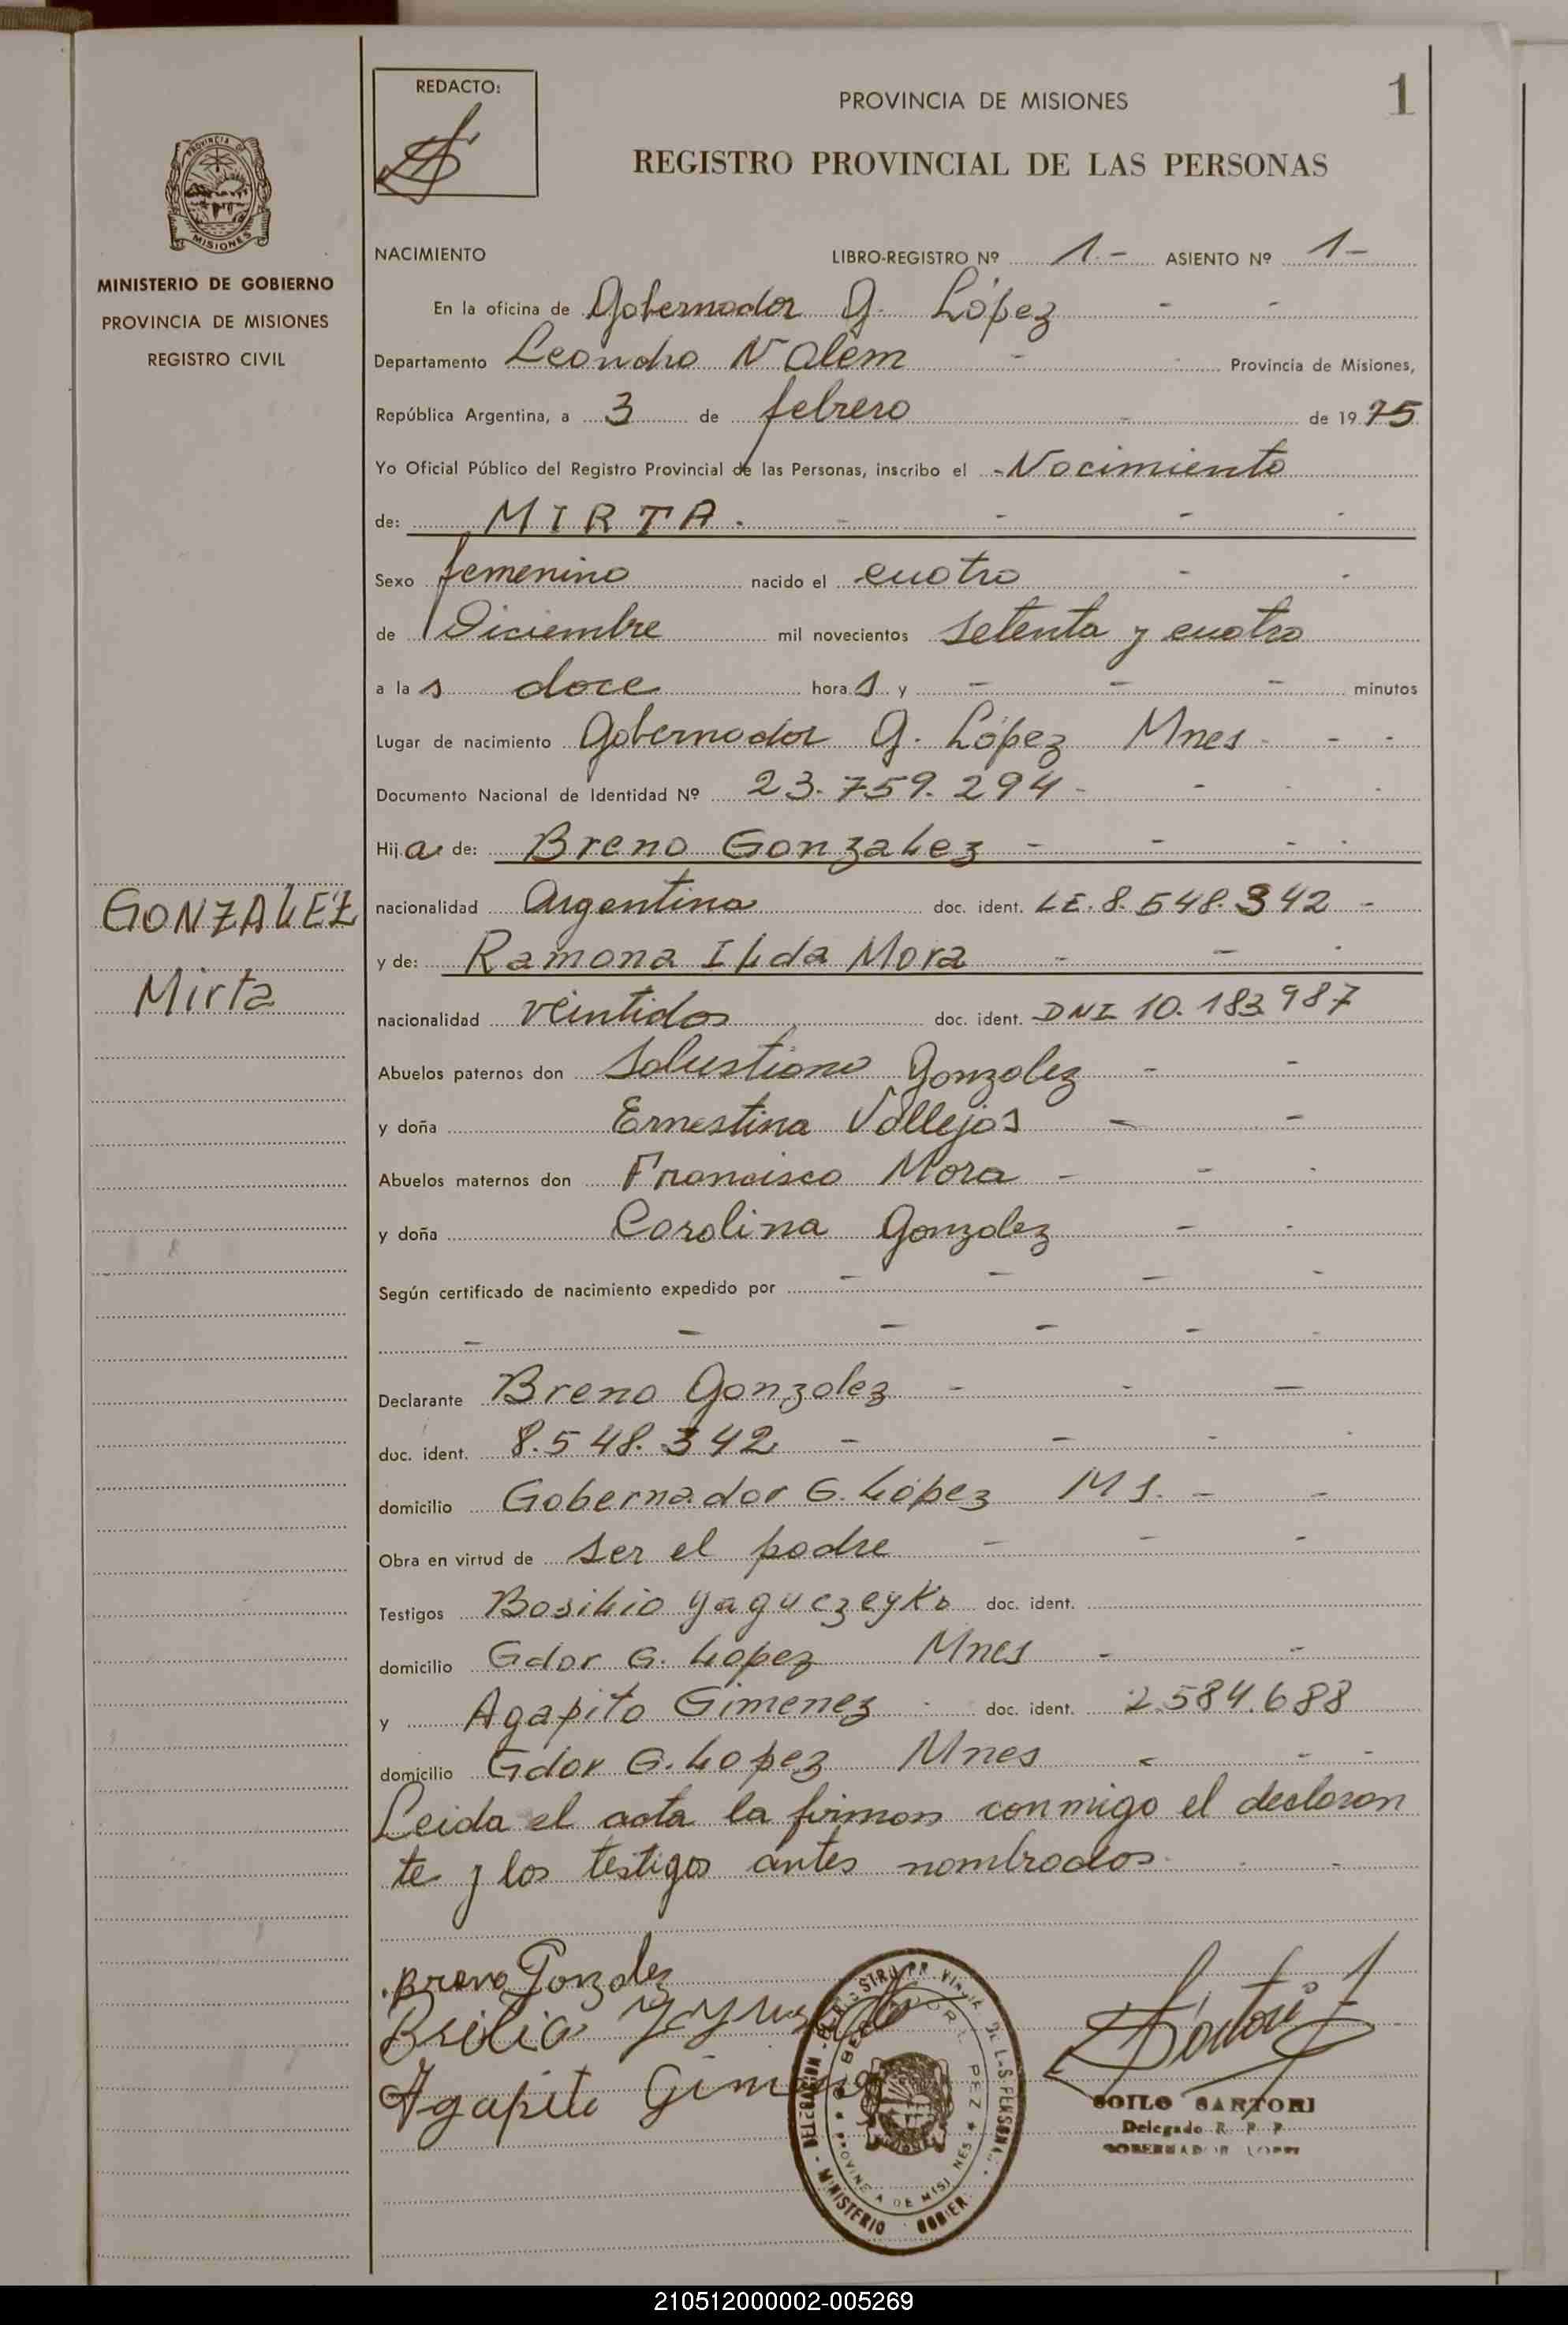 REDACTO:
PROVINCIA DE MISIONES
1
REGISTRO PROVINCIAL DE LAS PERSONAS
PROVINCIA DE
MISIONES
MINISTERIO DE GOBIERNO
PROVINCIA DE MISIONES
REGISTRO CIVIL
NACIMIENTO LIBRO-REGISTRO Nº 1.- ASIENTO Nº 1-
En la oficina de Gobernador G. López - -
Departamento Leandro N Alem - - Provincia de Misiones,
República Argentina, a 3 de febrero - de 1975
Yo Oficial Público del Registro Provincial de las Personas, inscribo el - Nacimiento
de: MIRTA. - - - -
Sexo femenino nacido el cuatro - -
de Diciembre mil novecientos setenta y cuatro
a las doce horas y - - - minutos
Lugar de nacimiento Gobernador G. López Mnes - - -
Documento Nacional de Identidad Nº 23.759.294 - - - -
Hija de: Breno Gonzalez - - - -
GONZALEZ
Mirta
nacionalidad Argentina doc. ident. LE. 8.548.342 -
y de: Ramona Ilda Mora - - -
nacionalidad veintidos doc. ident. DNI 10.183.987
Abuelos paternos don Salustiano Gonzalez - -
y doña Ernestina Vallejos - -
Abuelos maternos don Francisco Mora - - -
y doña Carolina Gonzalez - -
Según certificado de nacimiento expedido por - - - -
- - - - - -
Declarante Breno Gonzalez - - -
doc. ident. 8.548.342 - - - -
domicilio Gobernador G. López Ms. - -
Obra en virtud de ser el padre - - -
Testigos Basilio Yaguczeyko doc. ident.
domicilio Gdor G. Lopez Mnes - -
y Agapito Gimenez - doc. ident. 2.584.688
domicilio Gdor G. Lopez Mnes - - -
Leida el acta la firman conmigo el declaran
te y los testigos antes nombrados - - -
Breno Gonzalez
Agapito
Sartori
MINISTERIO
PROVINCIA DE MISIONES
SOILO SARTORI
Delegado R. P. P.
GOBERNADOR LOPEZ
210512000002-005269